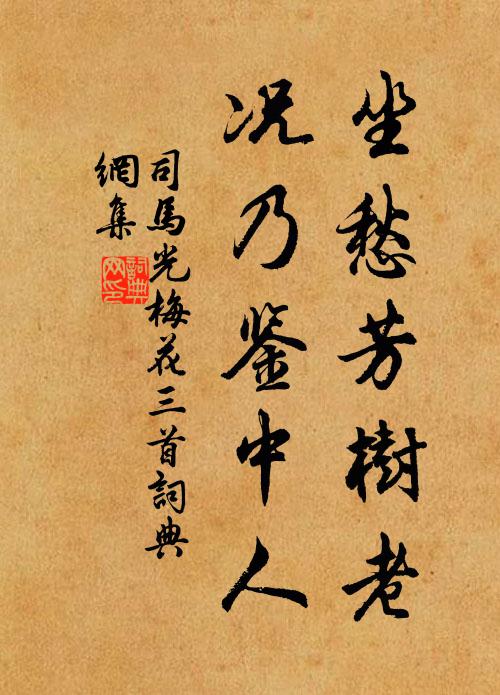 坐愁芳樹老
况乃鉴中人
司馬光梅花三首詞典
網集
詞典
网印